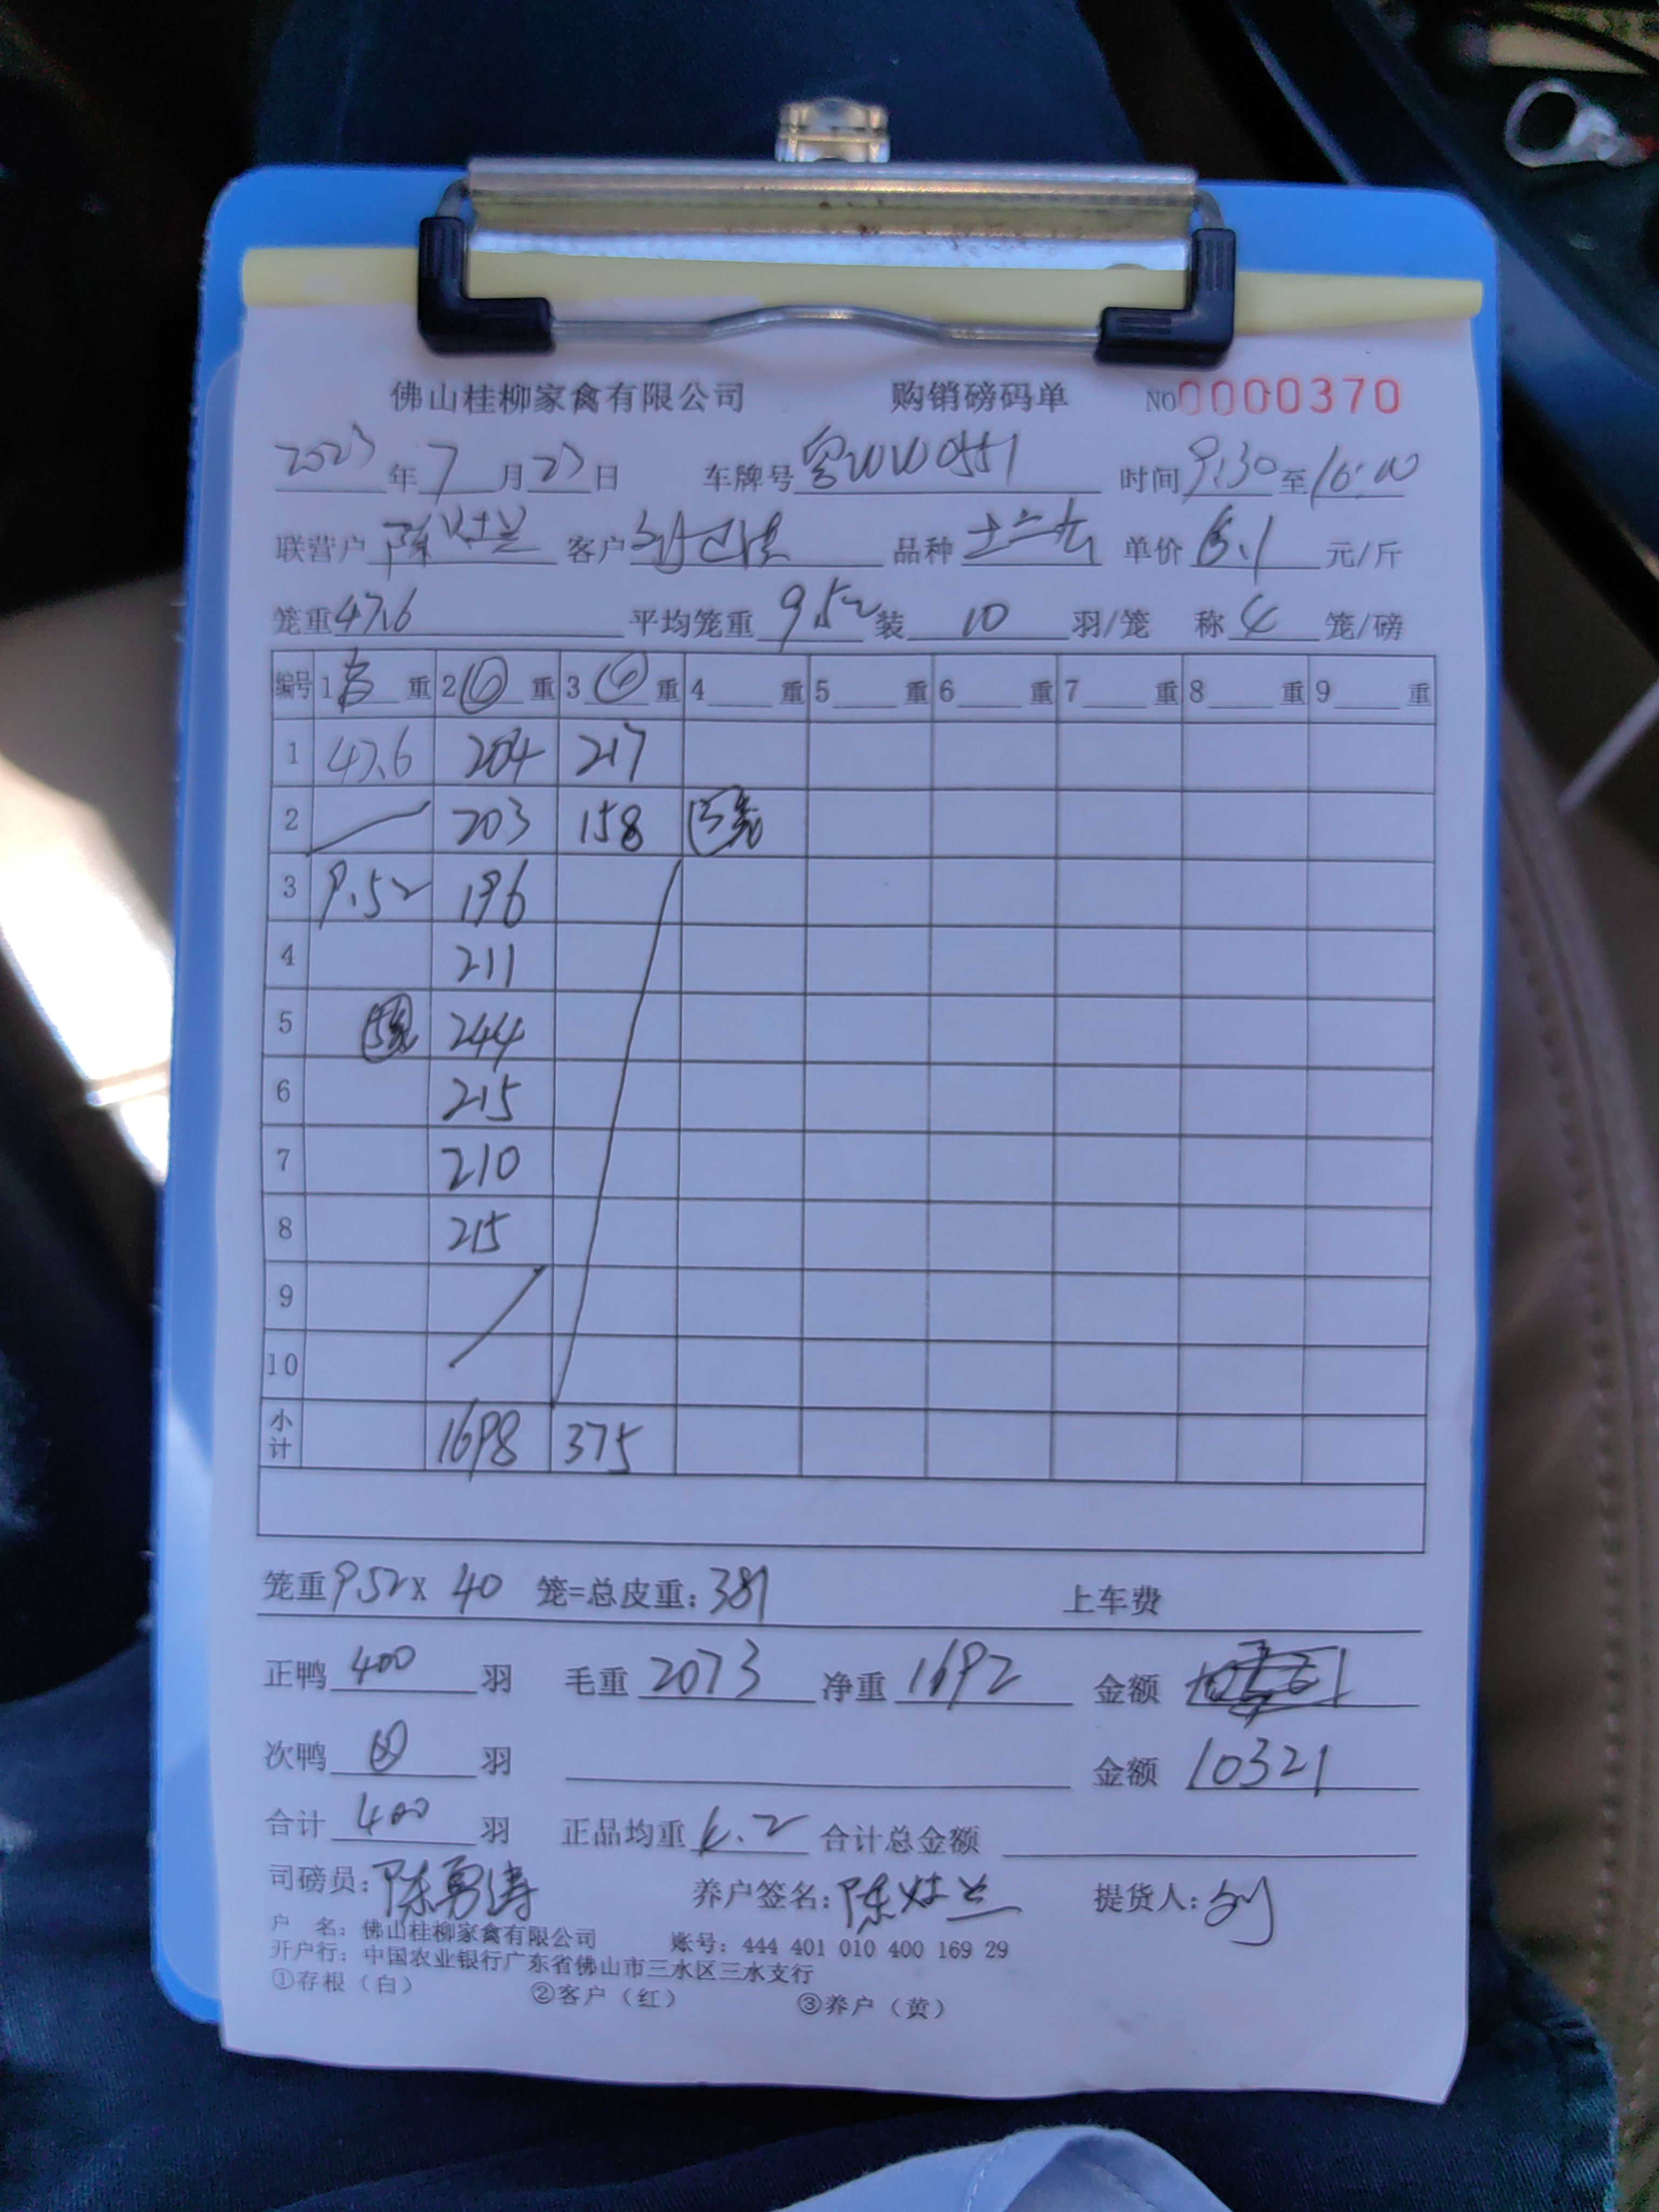 佛山桂柳家禽有限公司 购销磅码单 NO0000370
2023年7月23日 车牌号 时间9:30至10:10
联营户 陈灶兰 客户 品种 土二 单价6.1元/斤
笼重47.6 平均笼重9.52装10羽/笼 称4笼/磅
编号 1 重 2④重 3④重 4 重 5 重 6 重 7 重 8 重 9 重
1 47.6 204 217
2 203 158
3 9.52 196
4 211
5 5笼 244
6 215
7 210
8 215
9
10
小计 1698 375
笼重9.52x 40 笼=总皮重:381 上车费
正鸭400羽 毛重2073 净重1692 金额
次鸭 羽 金额10321
合计400羽 正品均重4.2 合计总金额
司磅员:陈勇涛 养户签名:陈灶兰 提货人:刘
户 名:佛山桂柳家禽有限公司 账号:444 401 010 400 169 29
开户行:中国农业银行广东省佛山市三水区三水支行
①存根(白) ②客户(红) ③养户(黄)